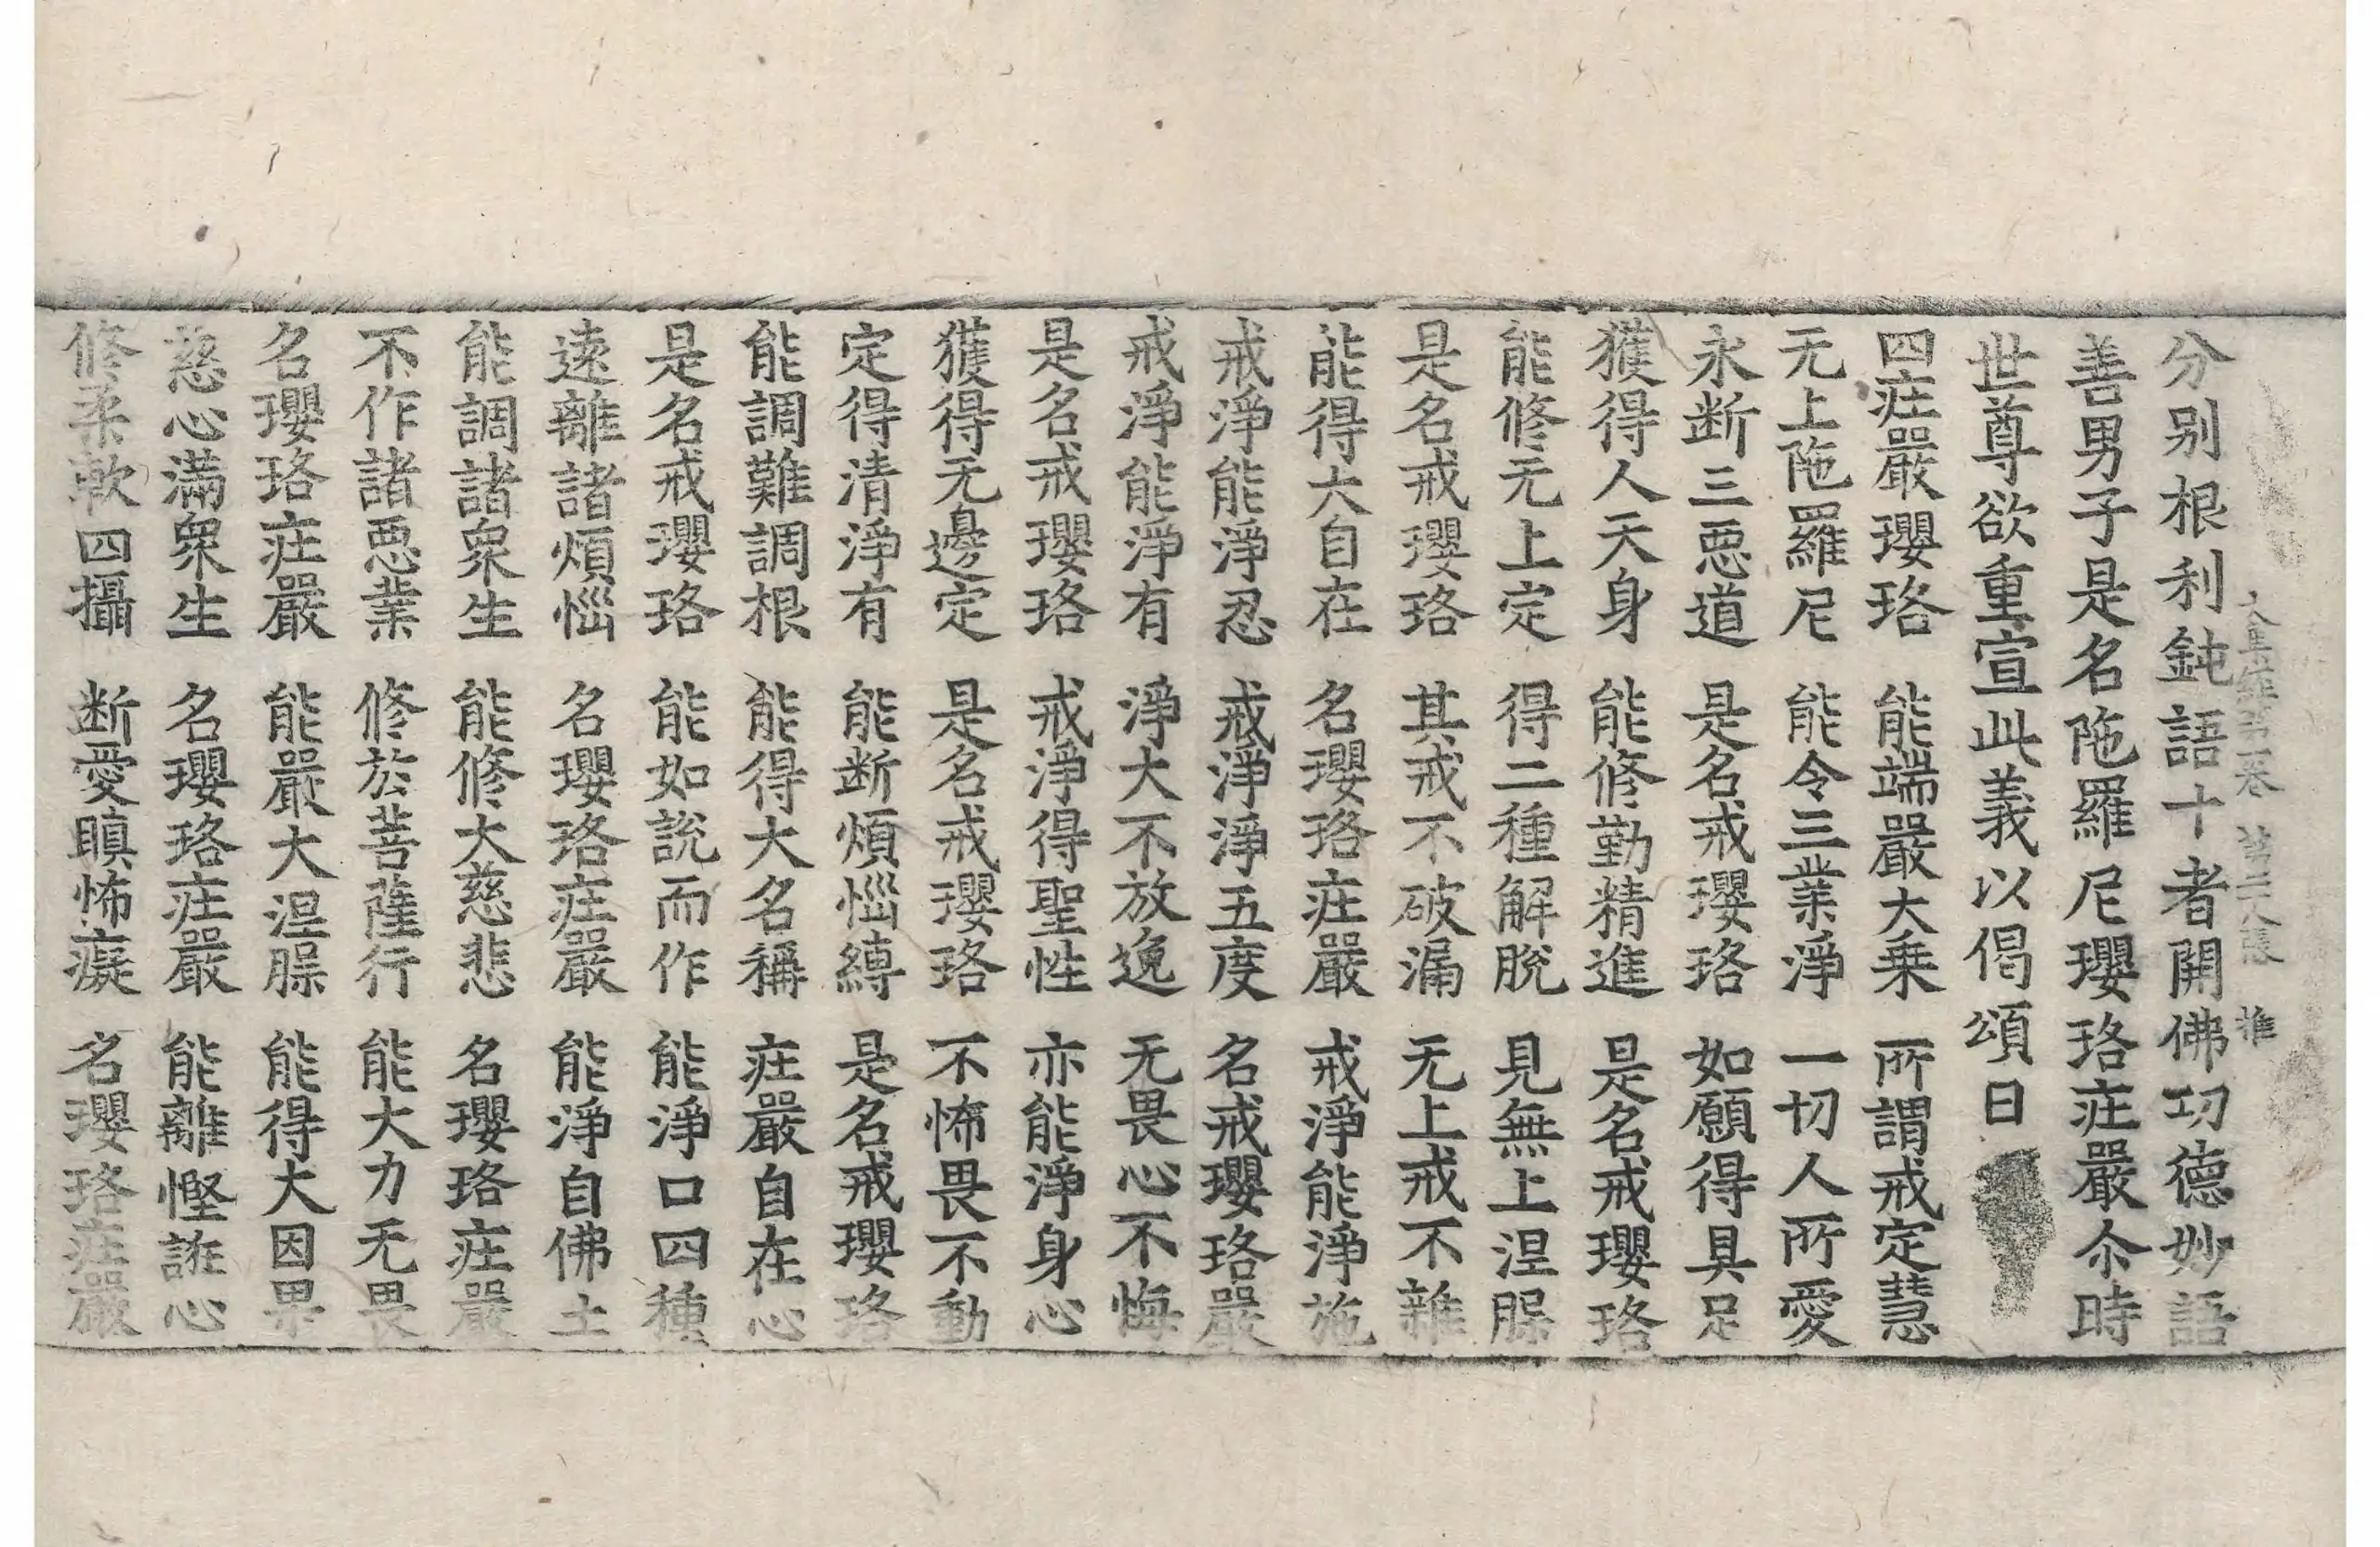 大集經第一卷 第二八張 推
分别根利鈍語十者開佛功德妙語
善男子是名陁羅尼瓔珞庄嚴尒時
世尊欲重宣此義以偈頌曰
四庄嚴瓔珞 能端嚴大乗 所謂戒定慧
无上陁羅尼 能令三業淨 一切人所愛
永断三惡道 是名戒瓔珞 如願得具足
獲得人天身 能修勤精進 是名戒瓔珞
能修无上定 得二種解脫 見無上涅槃
是名戒瓔珞 其戒不破漏 无上戒不雜
能得大自在 名瓔珞庄嚴 戒淨能淨施
戒淨能淨忍 戒淨淨五度 名戒瓔珞嚴
戒淨能淨有 淨大不放逸 无畏心不悔
是名戒瓔珞 戒淨得聖性 亦能淨身心
獲得无邊定 是名戒瓔珞 不怖畏不動
定得清淨有 能断煩惱縛 是名戒瓔珞
能調難調根 能得大名稱 庄嚴自在心
是名戒瓔珞 能如說而作 能淨口四種
遠離諸煩惱 名瓔珞庄嚴 能淨自佛土
能調諸衆生 能修大慈悲 名瓔珞庄嚴
不作諸惡業 修於菩薩行 能大力无畏
名瓔珞庄嚴 能嚴大涅槃 能得大因果
慈心滿衆生 名瓔珞庄嚴 能離慳誑心
修柔軟四攝 断愛瞋怖癡 名瓔珞庄嚴